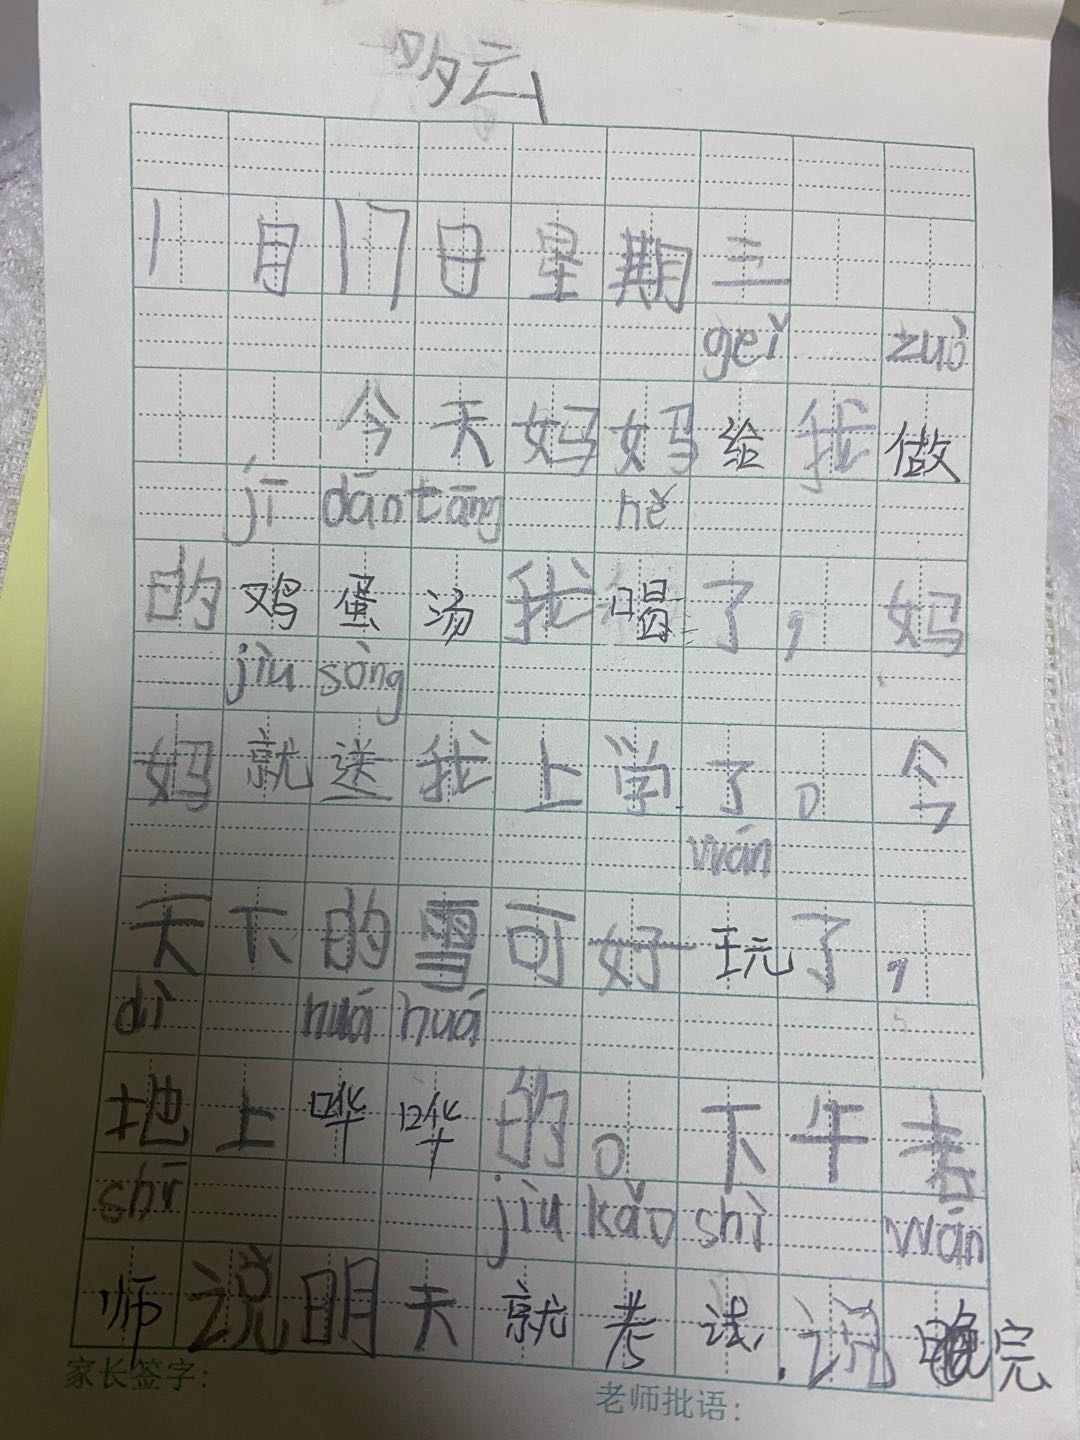 多云
1月17日星期三
gěi zuò
今天妈妈给我做
jī dāo tāng hě
的鸡蛋汤我喝了，妈
jiù sòng
妈就送我上学了。今
wán
天下的雪可好玩了，
dì huá huá
地上哗哗的。下午老
shī jiù kǎo shì wán
师说明天就考试.说完
家长签字：
老师批语：